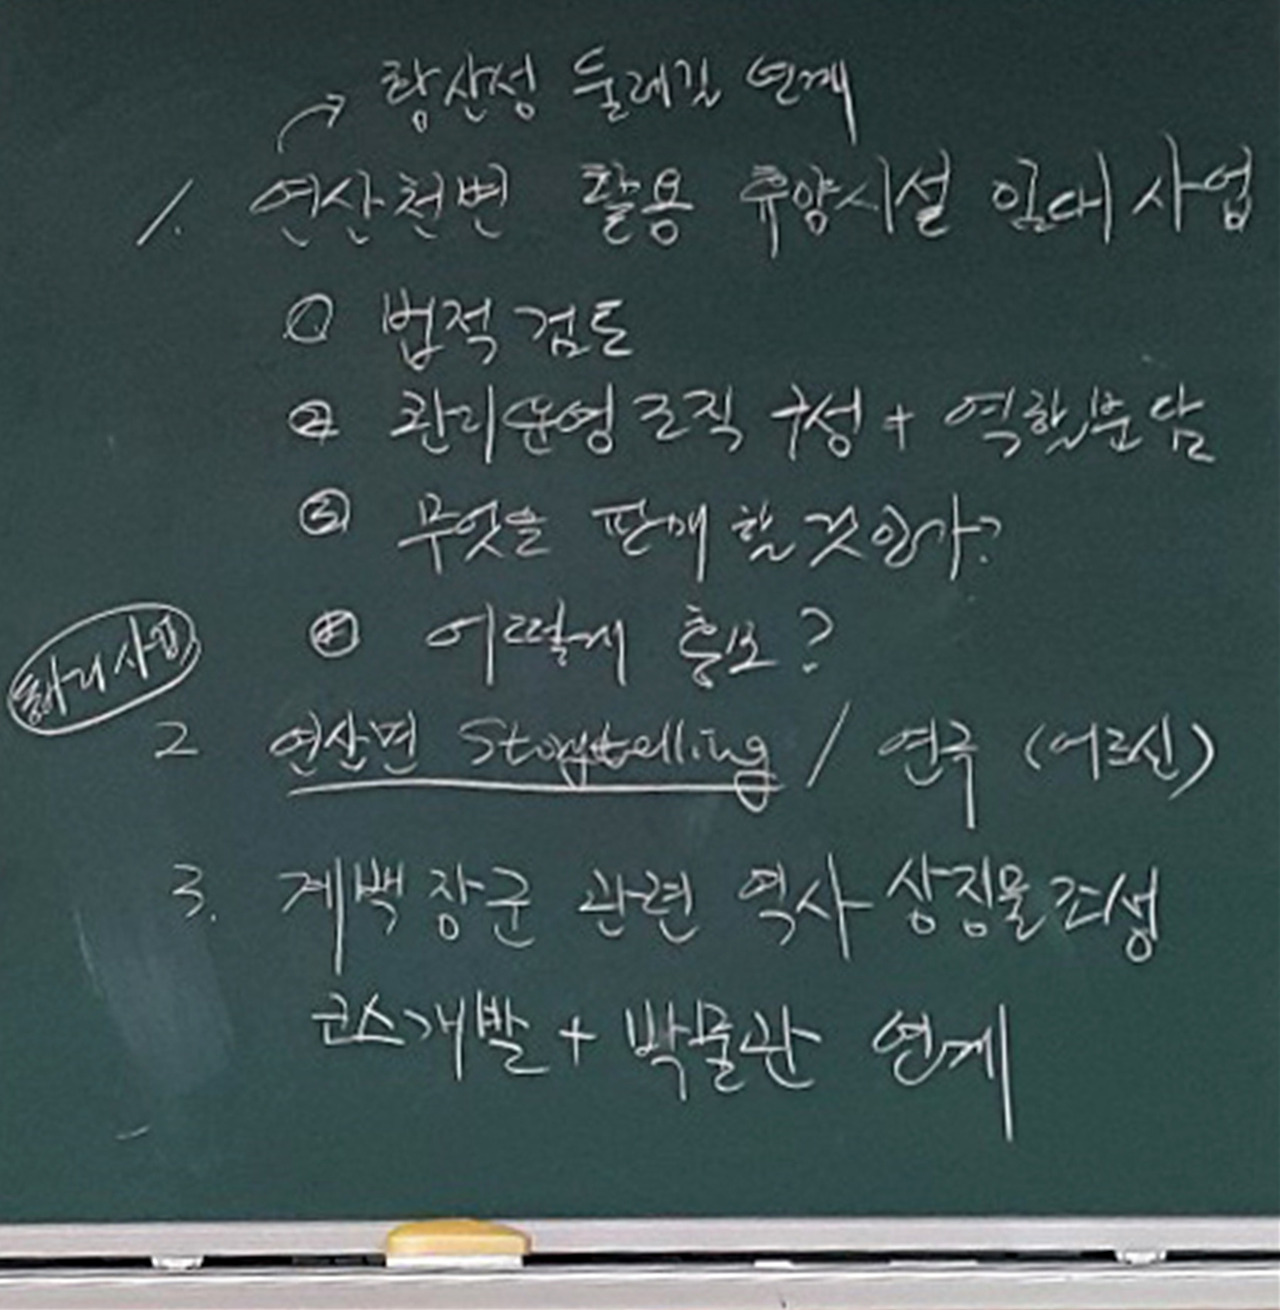 → 황산성 둘레길 연계
1. 연산천변 활용 휴양시설 임대사업
① 법적검토
② 관리운영조직 구성 + 역할분담
③ 무엇을 판매할 것인가?
④ 어떻게 홍보?
동아리사업
2 연산면 Storytelling / 연극 (어르신)
3. 계백장군 관련 역사 상징물조성
코스개발 + 박물관 연계